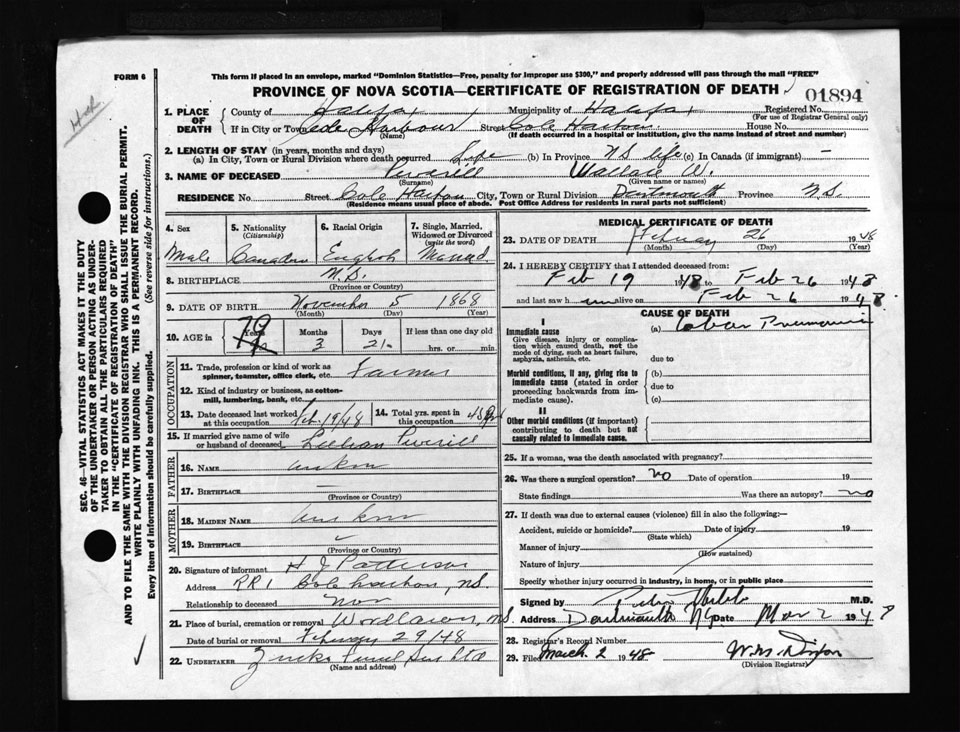 FORM 6
This form if placed in an envelope, marked "Dominion Statistics—Free, penalty for improper use $300," and properly addressed will pass through the mail "FREE"
PROVINCE OF NOVA SCOTIA—CERTIFICATE OF REGISTRATION OF DEATH
01894
1. PLACE OF DEATH { County of Halifax Municipality of Halifax Registered No.
(For use of Registrar General only)
If in City or Town Cole Harbour Street Cole Harbour House No.
(Name) (If death occurred in a hospital or institution, give the name instead of street and number)
2. LENGTH OF STAY (in years, months and days)
(a) In City, Town or Rural Division where death occurred Life (b) In Province NS life (c) In Canada (if immigrant) —
3. NAME OF DECEASED Peverill Wallace W.
(Surname) (Given name or names)
RESIDENCE No. Street Cole Harbour City, Town or Rural Division Dartmouth Province N.S.
(Residence means usual place of abode. Post Office Address for residents in rural parts not sufficient)
4. Sex 5. Nationality (Citizenship) 6. Racial Origin 7. Single, Married, Widowed or Divorced (write the word)
Male Canadian English Married
8. BIRTHPLACE N.S.
(Province or Country)
9. DATE OF BIRTH November 5 1868
(Month) (Day) (Year)
10. AGE in { Years Months Days If less than one day old
79 3 21 hrs. or min.
OCCUPATION
11. Trade, profession or kind of work as spinner, teamster, office clerk, etc. Farmer
12. Kind of industry or business, as cotton-mill, lumbering, bank, etc.
13. Date deceased last worked at this occupation Feb. 19/48 14. Total yrs. spent in this occupation 45 yrs
15. If married give name of wife or husband of deceased Lillian Peverill
FATHER
16. NAME unkn
17. BIRTHPLACE —
(Province or Country)
MOTHER
18. MAIDEN NAME unkn
19. BIRTHPLACE
(Province or Country)
20. Signature of informant H J Patterson
Address RR1 Cole harbour, NS.
Relationship to deceased Non
21. Place of burial, cremation or removal Woodlawn, NS.
Date of burial or removal February 29/48
22. UNDERTAKER Zinks Funeral Ser Ltd
(Name and address)
MEDICAL CERTIFICATE OF DEATH
23. DATE OF DEATH February 26 1948
(Month) (Day) (Year)
24. I HEREBY CERTIFY that I attended deceased from:
Feb 19 1948 to Feb 26 1948
and last saw him alive on Feb 26 1948
CAUSE OF DEATH
I
Immediate cause (a) Lobar Pneumonia
Give disease, injury or complication which caused death, not the mode of dying, such as heart failure, asphyxia, asthenia, etc. due to
Morbid conditions, if any, giving rise to immediate cause (stated in order proceeding backwards from immediate cause). (b)
due to
(c)
II
Other morbid conditions (if important) contributing to death but not causally related to immediate cause.
25. If a woman, was the death associated with pregnancy?
26. Was there a surgical operation? no Date of operation 19
State findings Was there an autopsy? no
27. If death was due to external causes (violence) fill in also the following:—
Accident, suicide or homicide? Date of injury 19
(State which)
Manner of injury
(How sustained)
Nature of injury
Specify whether injury occurred in industry, in home, or in public place
Signed by M.D.
Address Dartmouth NS Date Mar 2 1948
28. Registrar's Record Number
29. Filed March 2 1948
(Division Registrar)
SEC. 46—VITAL STATISTICS ACT MAKES IT THE DUTY
OF THE UNDERTAKER OR PERSON ACTING AS UNDER-
TAKER TO OBTAIN ALL THE PARTICULARS REQUIRED
IN THE "CERTIFICATE OF REGISTRATION OF DEATH"
AND TO FILE THE SAME WITH THE DIVISION REGISTRAR WHO SHALL ISSUE THE BURIAL PERMIT.
WRITE PLAINLY WITH UNFADING INK. THIS IS A PERMANENT RECORD.
Every item of information should be carefully supplied. (See reverse side for instructions.)